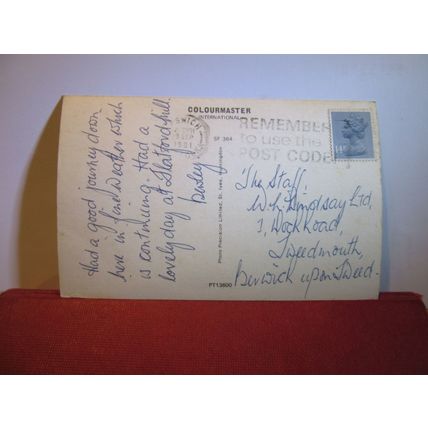 COLOURMASTER
INTERNATIONAL
SF 364
Photo Precision Limited, St. Ives, Huntingdon
PT13600
Had a good journey down
here in fine weather which
is continuing. Had a
lovely day at Flatford Mill
SWICH
SEP
1981
REMEMBER
to use the
POST CODE
The Staff,
W. Lindsay Ltd,
1, Dock Road,
Tweedmouth,
Berwick upon Tweed.